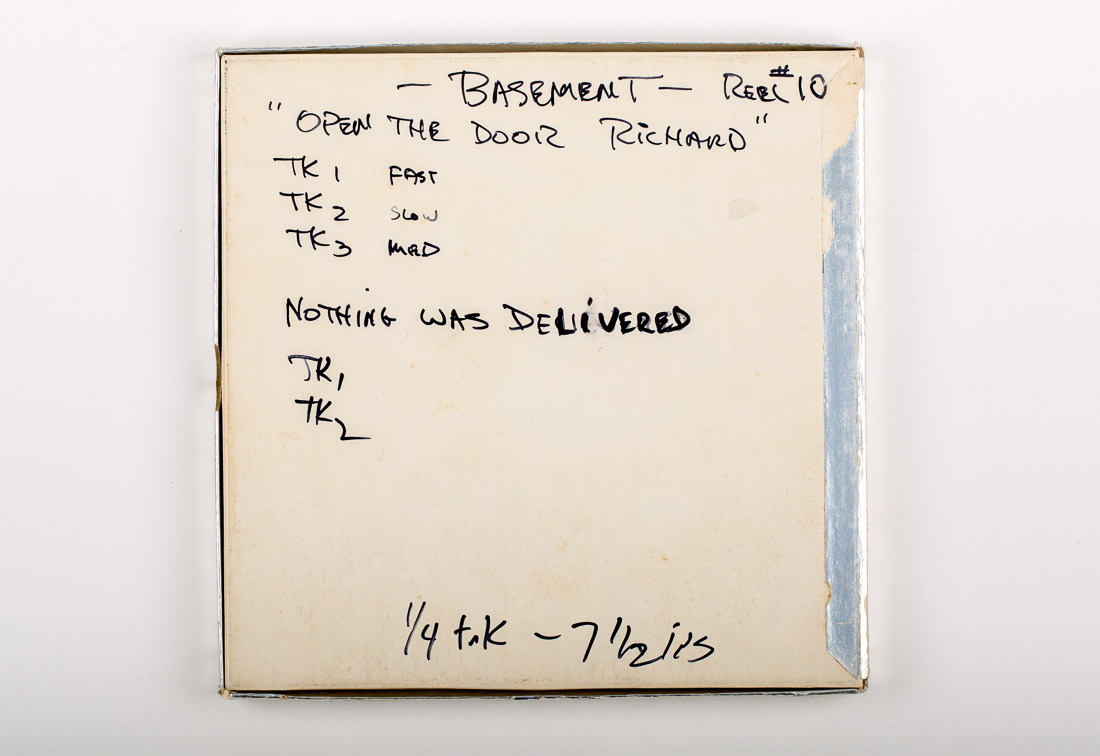 — BASEMENT — REEL #10
"OPEN THE DOOR RICHARD"
TK 1 FAST
TK 2 SLOW
TK 3 MED
NOTHING WAS DELIVERED
TK 1
TK 2
1/4 trK – 7 1/2 ips